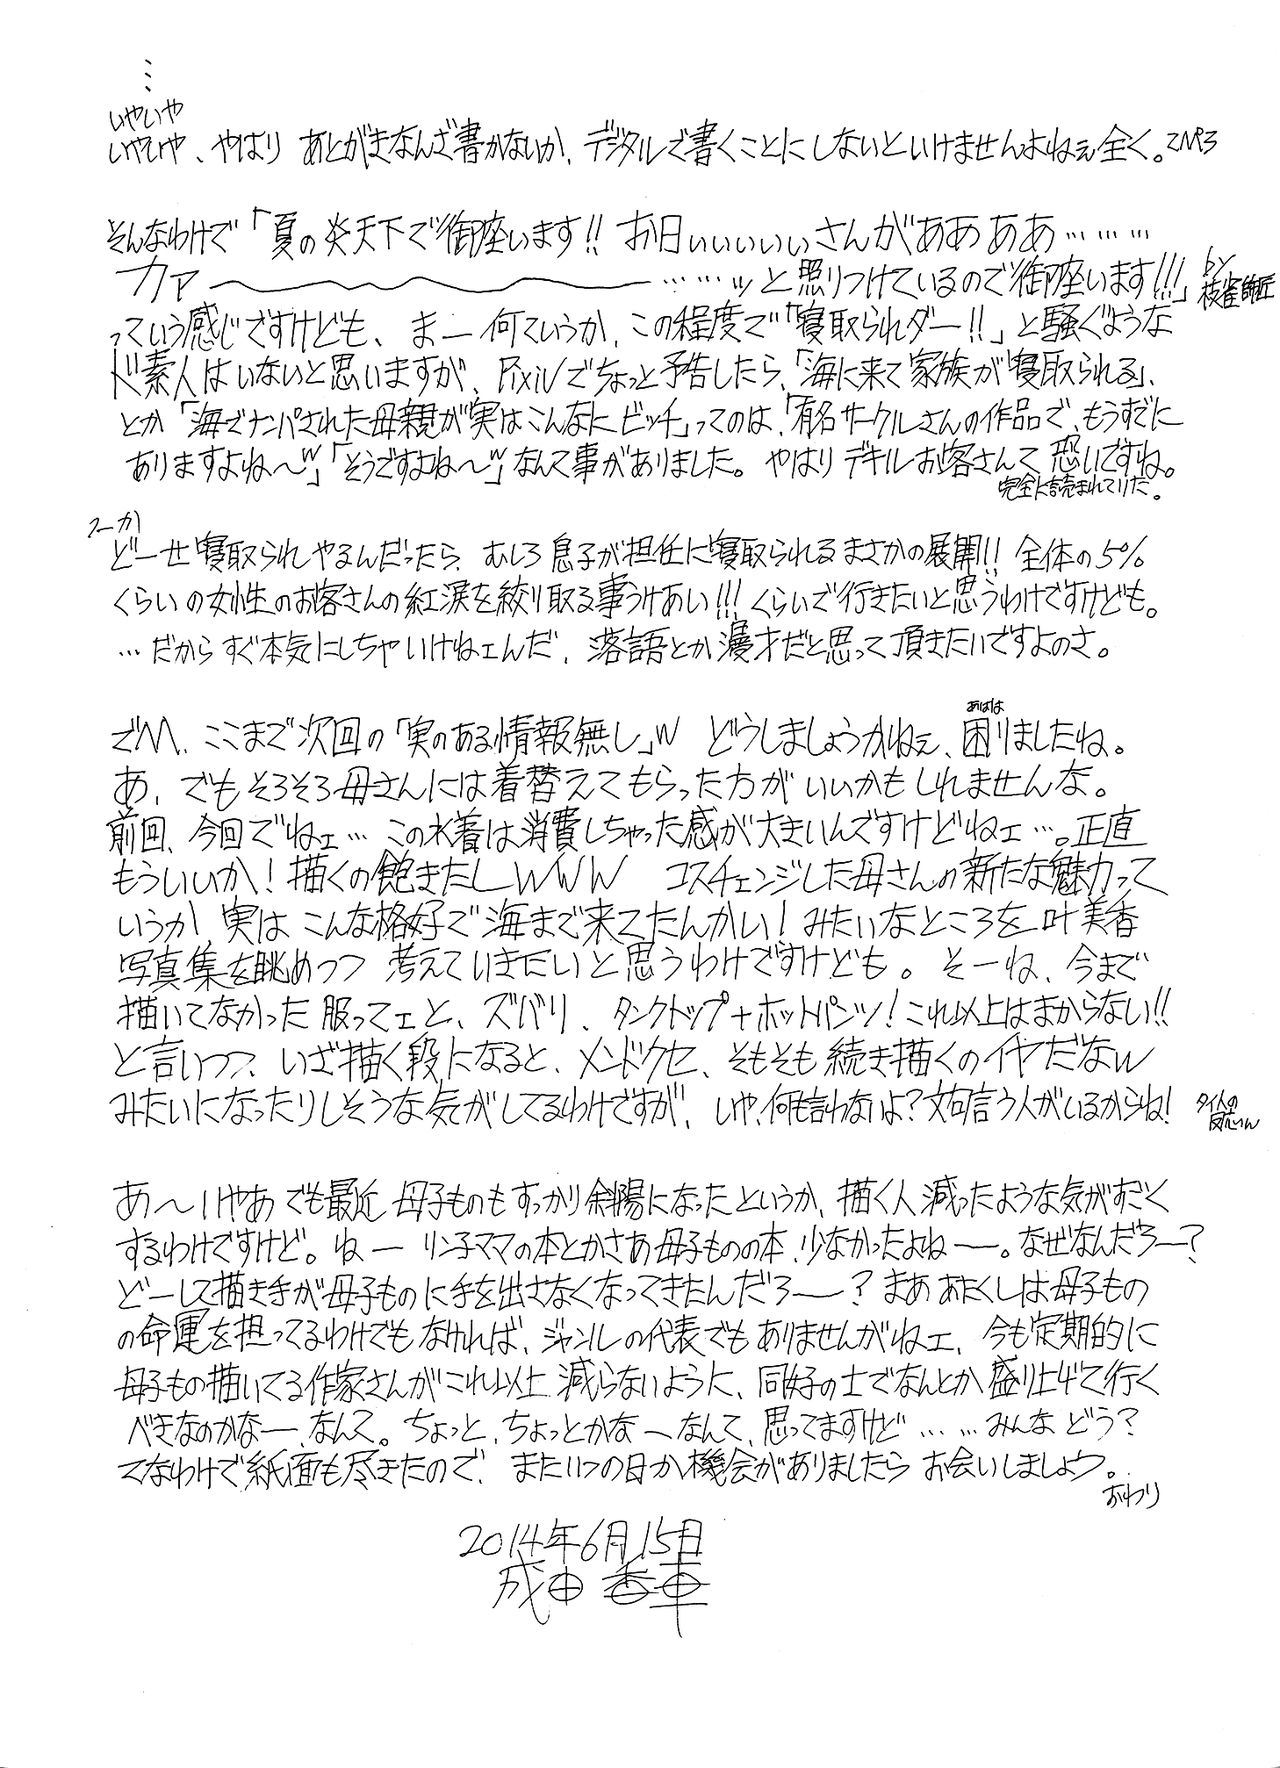 …
いやいや
いやいや、やはり あとがきなんざ書かないか、デジタルで書くことにしないといけませんよねぇ全く。
そんなわけで「夏の炎天下で御座います!! お日ぃぃぃぃぃさんがああああ………
カァ〜〜〜……ッと照りつけているので御座います!!!」by 枝雀師匠
っていう感じですけども、まー何ていうか、この程度で「寝取られダー!!」と騒ぐような
ド素人はいないと思いますが、Pixivでちょっと予告したら、「海に来て家族が寝取られる」、
とか「海でナンパされた母親が実はこんなにビッチ」ってのは、「有名サークルさんの作品で、もうすでに
ありますよね〜w」「そうですよね〜w」なんて事がありました。やはりデキルお客さんて恐いですね。
完全に読まれていりだ。
つーか
どーせ寝取られやるんだったら、むしろ息子が担任に寝取られるまさかの展開!! 全体の5%
くらいの女性のお客さんの紅涙を絞り取る事うけあい!!! くらいで行きたいと思うわけですけども。
…だからすぐ本気にしちゃいけねェんだ、落語とか漫才だと思って頂きたいですよのさ。
でM、ここまで次回の「実のある情報無し」w どうしましょうかねぇ、困りましたね。
あはは
あ、でもそろそろ母さんには着替えてもらった方がいいかもしれませんな。
前回、今回でねェ…この水着は消費しちゃった感が大きいんですけどねェ…。正直
もういいか！描くの飽きたしwww コスチェンジした母さんの新たな魅力って
いうか 実はこんな格好で海まで来てたんかい！みたいなところを叶美香
写真集を眺めつつ 考えていきたいと思うわけですけども。そーね、今まで
描いてなかった服ってェと、ズバリ、タンクトップ+ホットパンツ！これ以上はまからない!!
と言いつつ、いざ描く段になると、メンドクセ、そもそも続き描くのイヤだなw
みたいになったりしそうな気がしてるわけですが、いや、何も言わないよ？文句言う人がいるからね！
あ〜いやあ でも最近 母子ものもすっかり斜陽になったというか、描く人減ったような気がすごく
するわけですけど。ねー リン子ママの本とかさあ母子ものの本、少なかったよねー。なぜなんだろー？
どーして描き手が母子ものに手を出さなくなってきたんだろー？まああたくしは母子もの
の命運を担ってるわけでもなければ、ジャンルの代表でもありませんがねェ、今も定期的に
母子もの描いてる作家さんがこれ以上減らないように、同好の士でなんとか盛り上げて行く
べきなのかなー、なんて。ちょっと、ちょっとかなーなんて、思ってますけど……みんなどう？
てなわけで紙面も尽きたので、またいつの日か機会がありましたらお会いしましょう。
おわり
2014年6月15日
成田香車